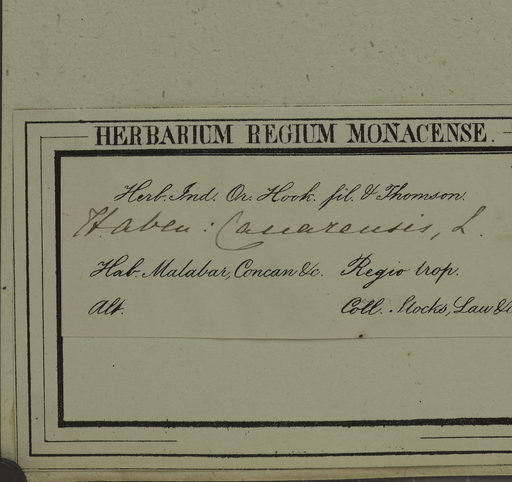 HERBARIUM REGIUM MONACENSE.
Herb. Ind. Or. Hook. fil. & Thomson.
Haben: Canarensis, L.
Hab. Malabar, Concan &c. Regio trop.
Alt. Coll. Stocks, Law &c